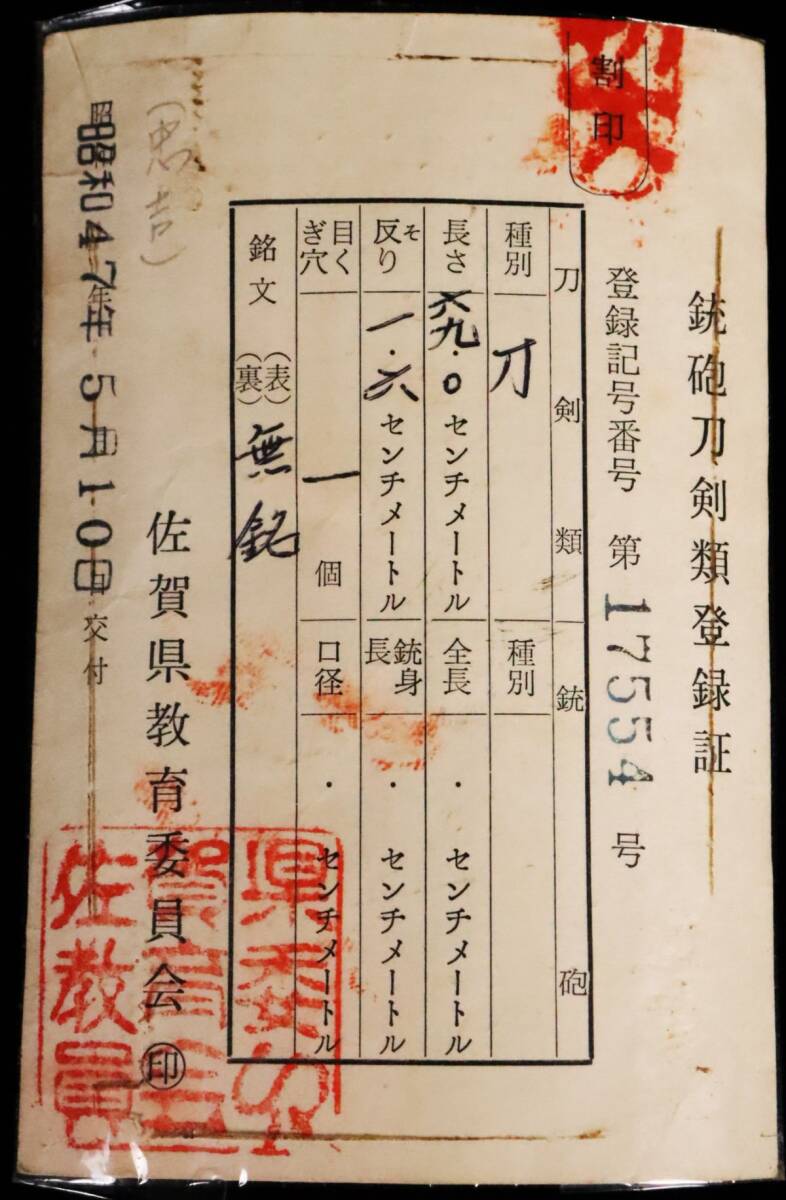 割印
銃砲刀剣類登録証
登録記号番号 第 17554 号
刀剣類
銃砲
種別 刀
種別
長さ 六九.0 センチメートル
全長 ・ センチメートル
反り そ 一.六 センチメートル
銃身長 ・ センチメートル
目くぎ穴 一 個
口径 ・ センチメートル
銘文 (表) (裏) 無銘
佐賀県教育委員会 印
(忠吉)
昭和47年5月10日交付